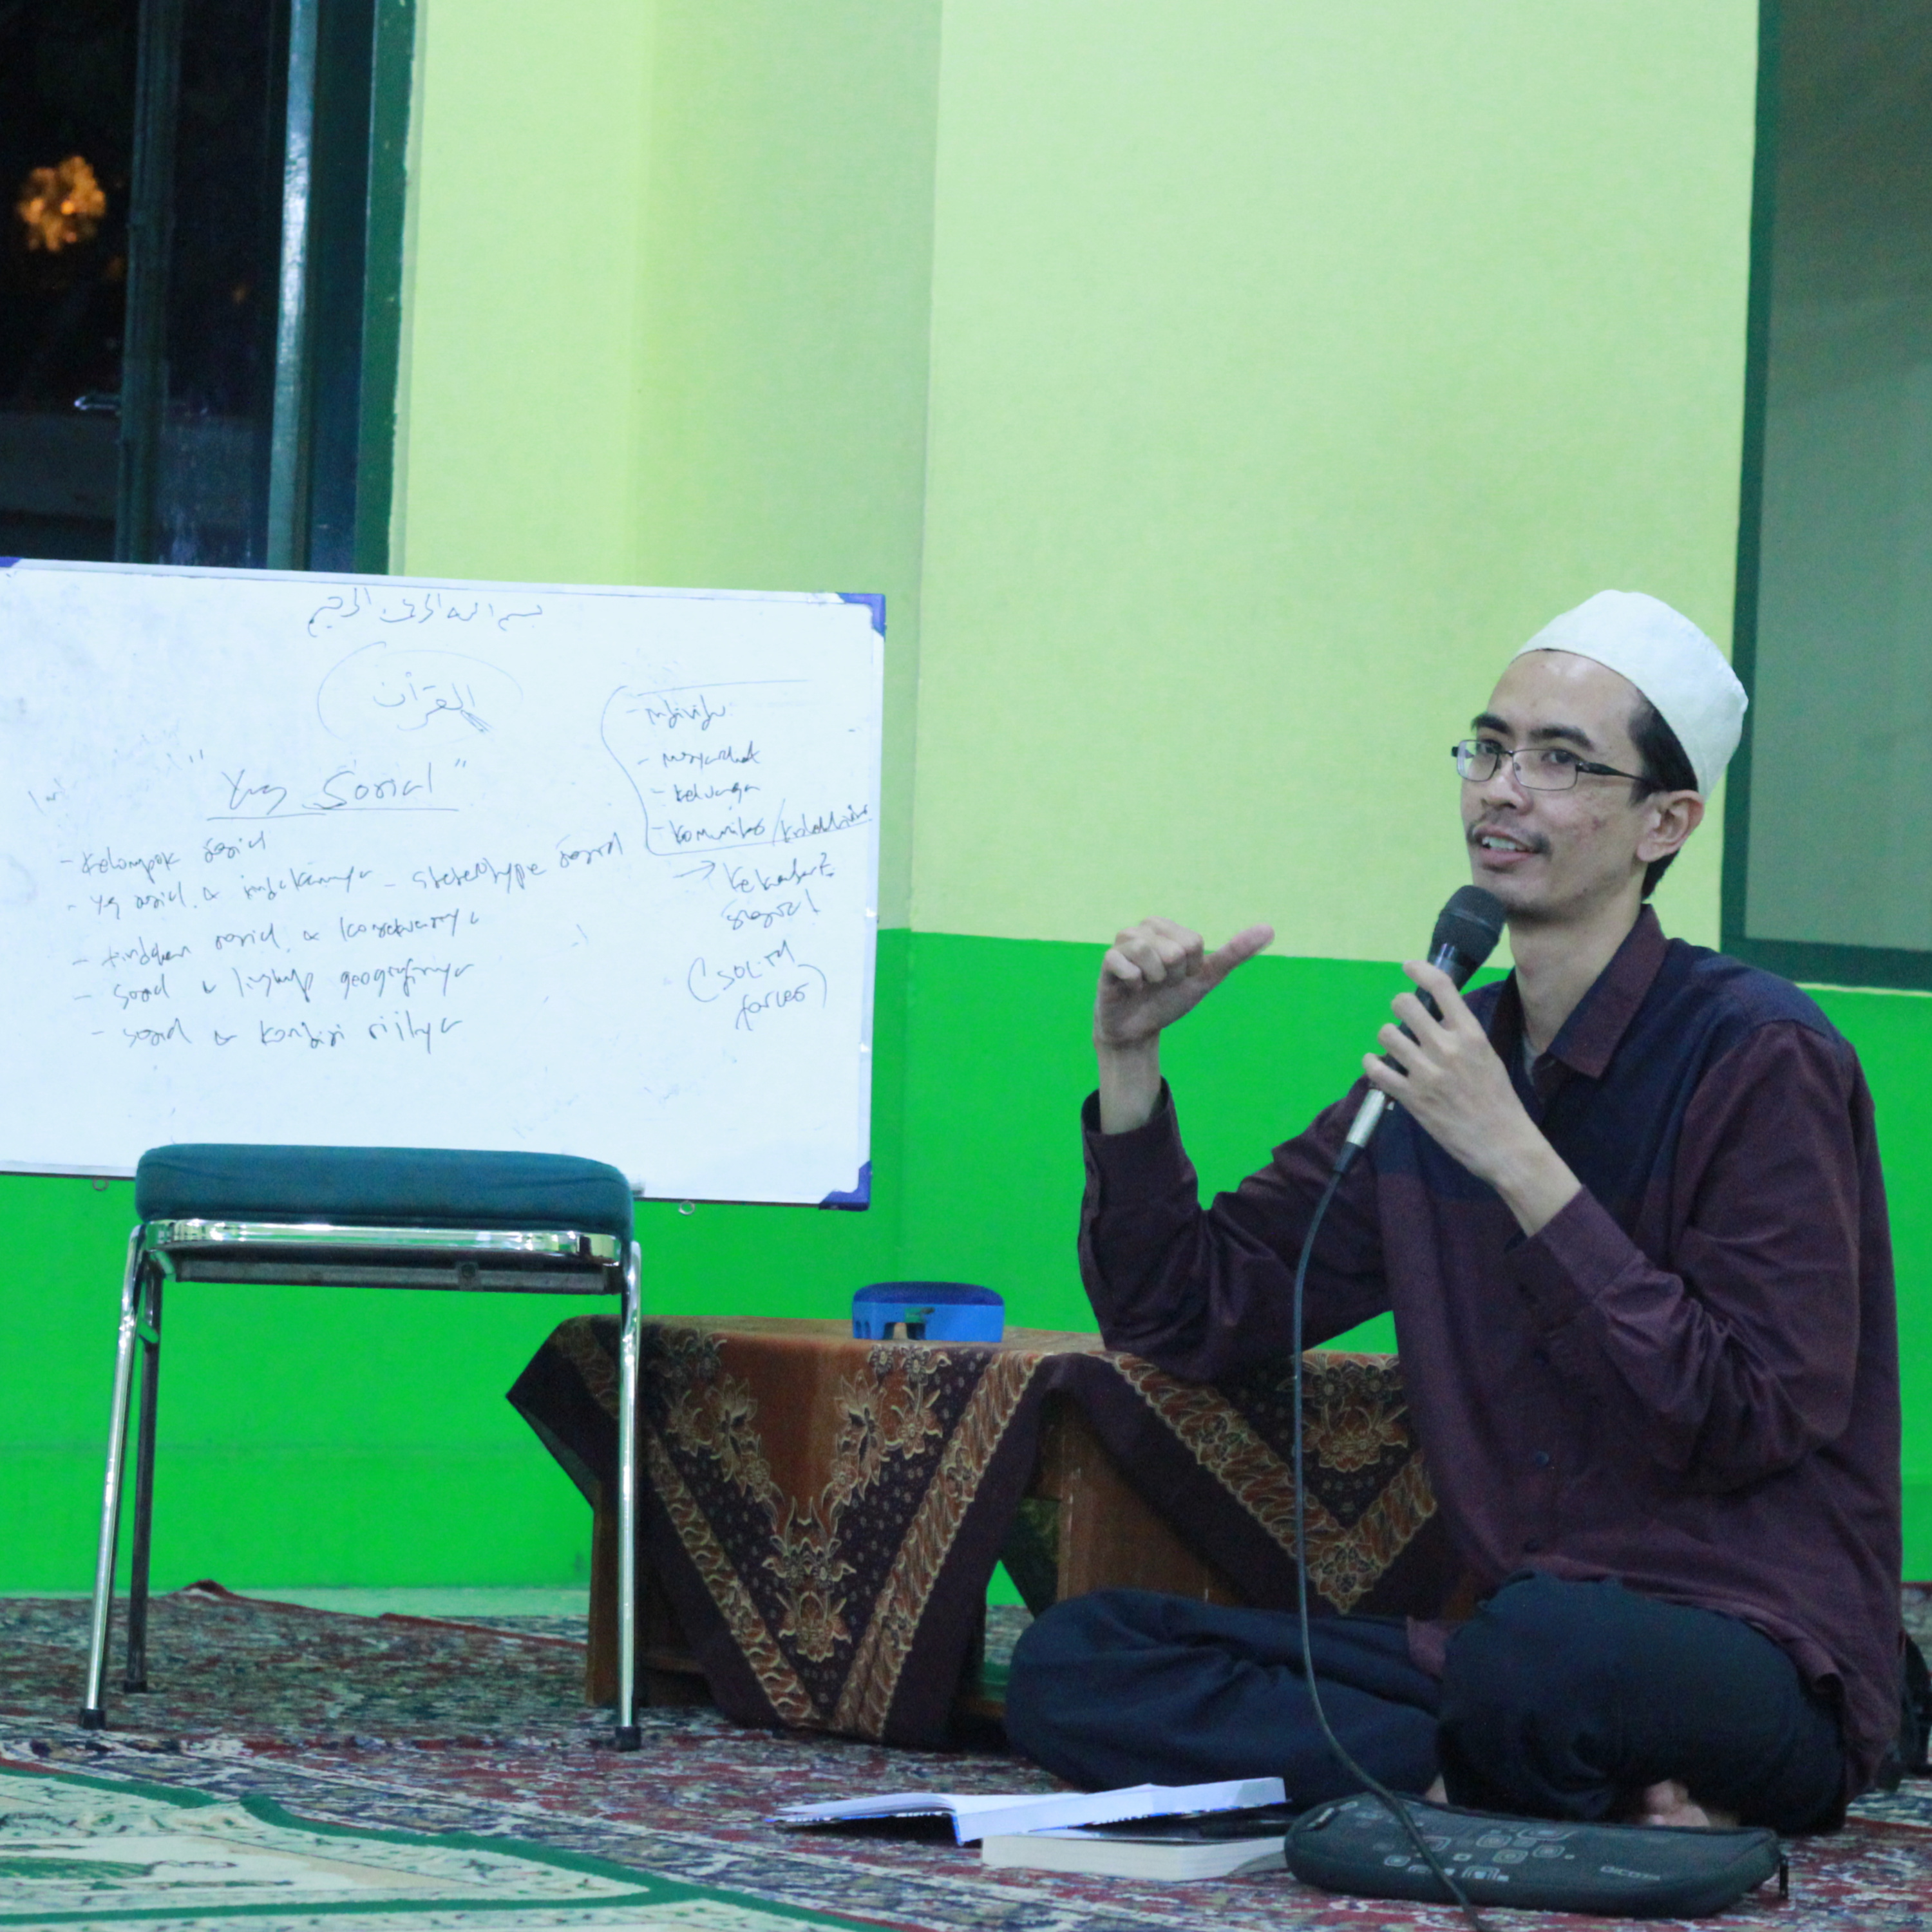 بسم الله الرحمن الرحيم
القرآن
"Yg Sosial"
- Kelompok sosial
- Yg sosial & tindakannya - stereotype sosial
- tindakan sosial & konsekuensinya
- Sosial & lingkup geografinya
- Sosial & kondisi riilnya
- individu
- masyarakat
- keluarga
- komunitas/
→
sosial
(SOLID
forces)